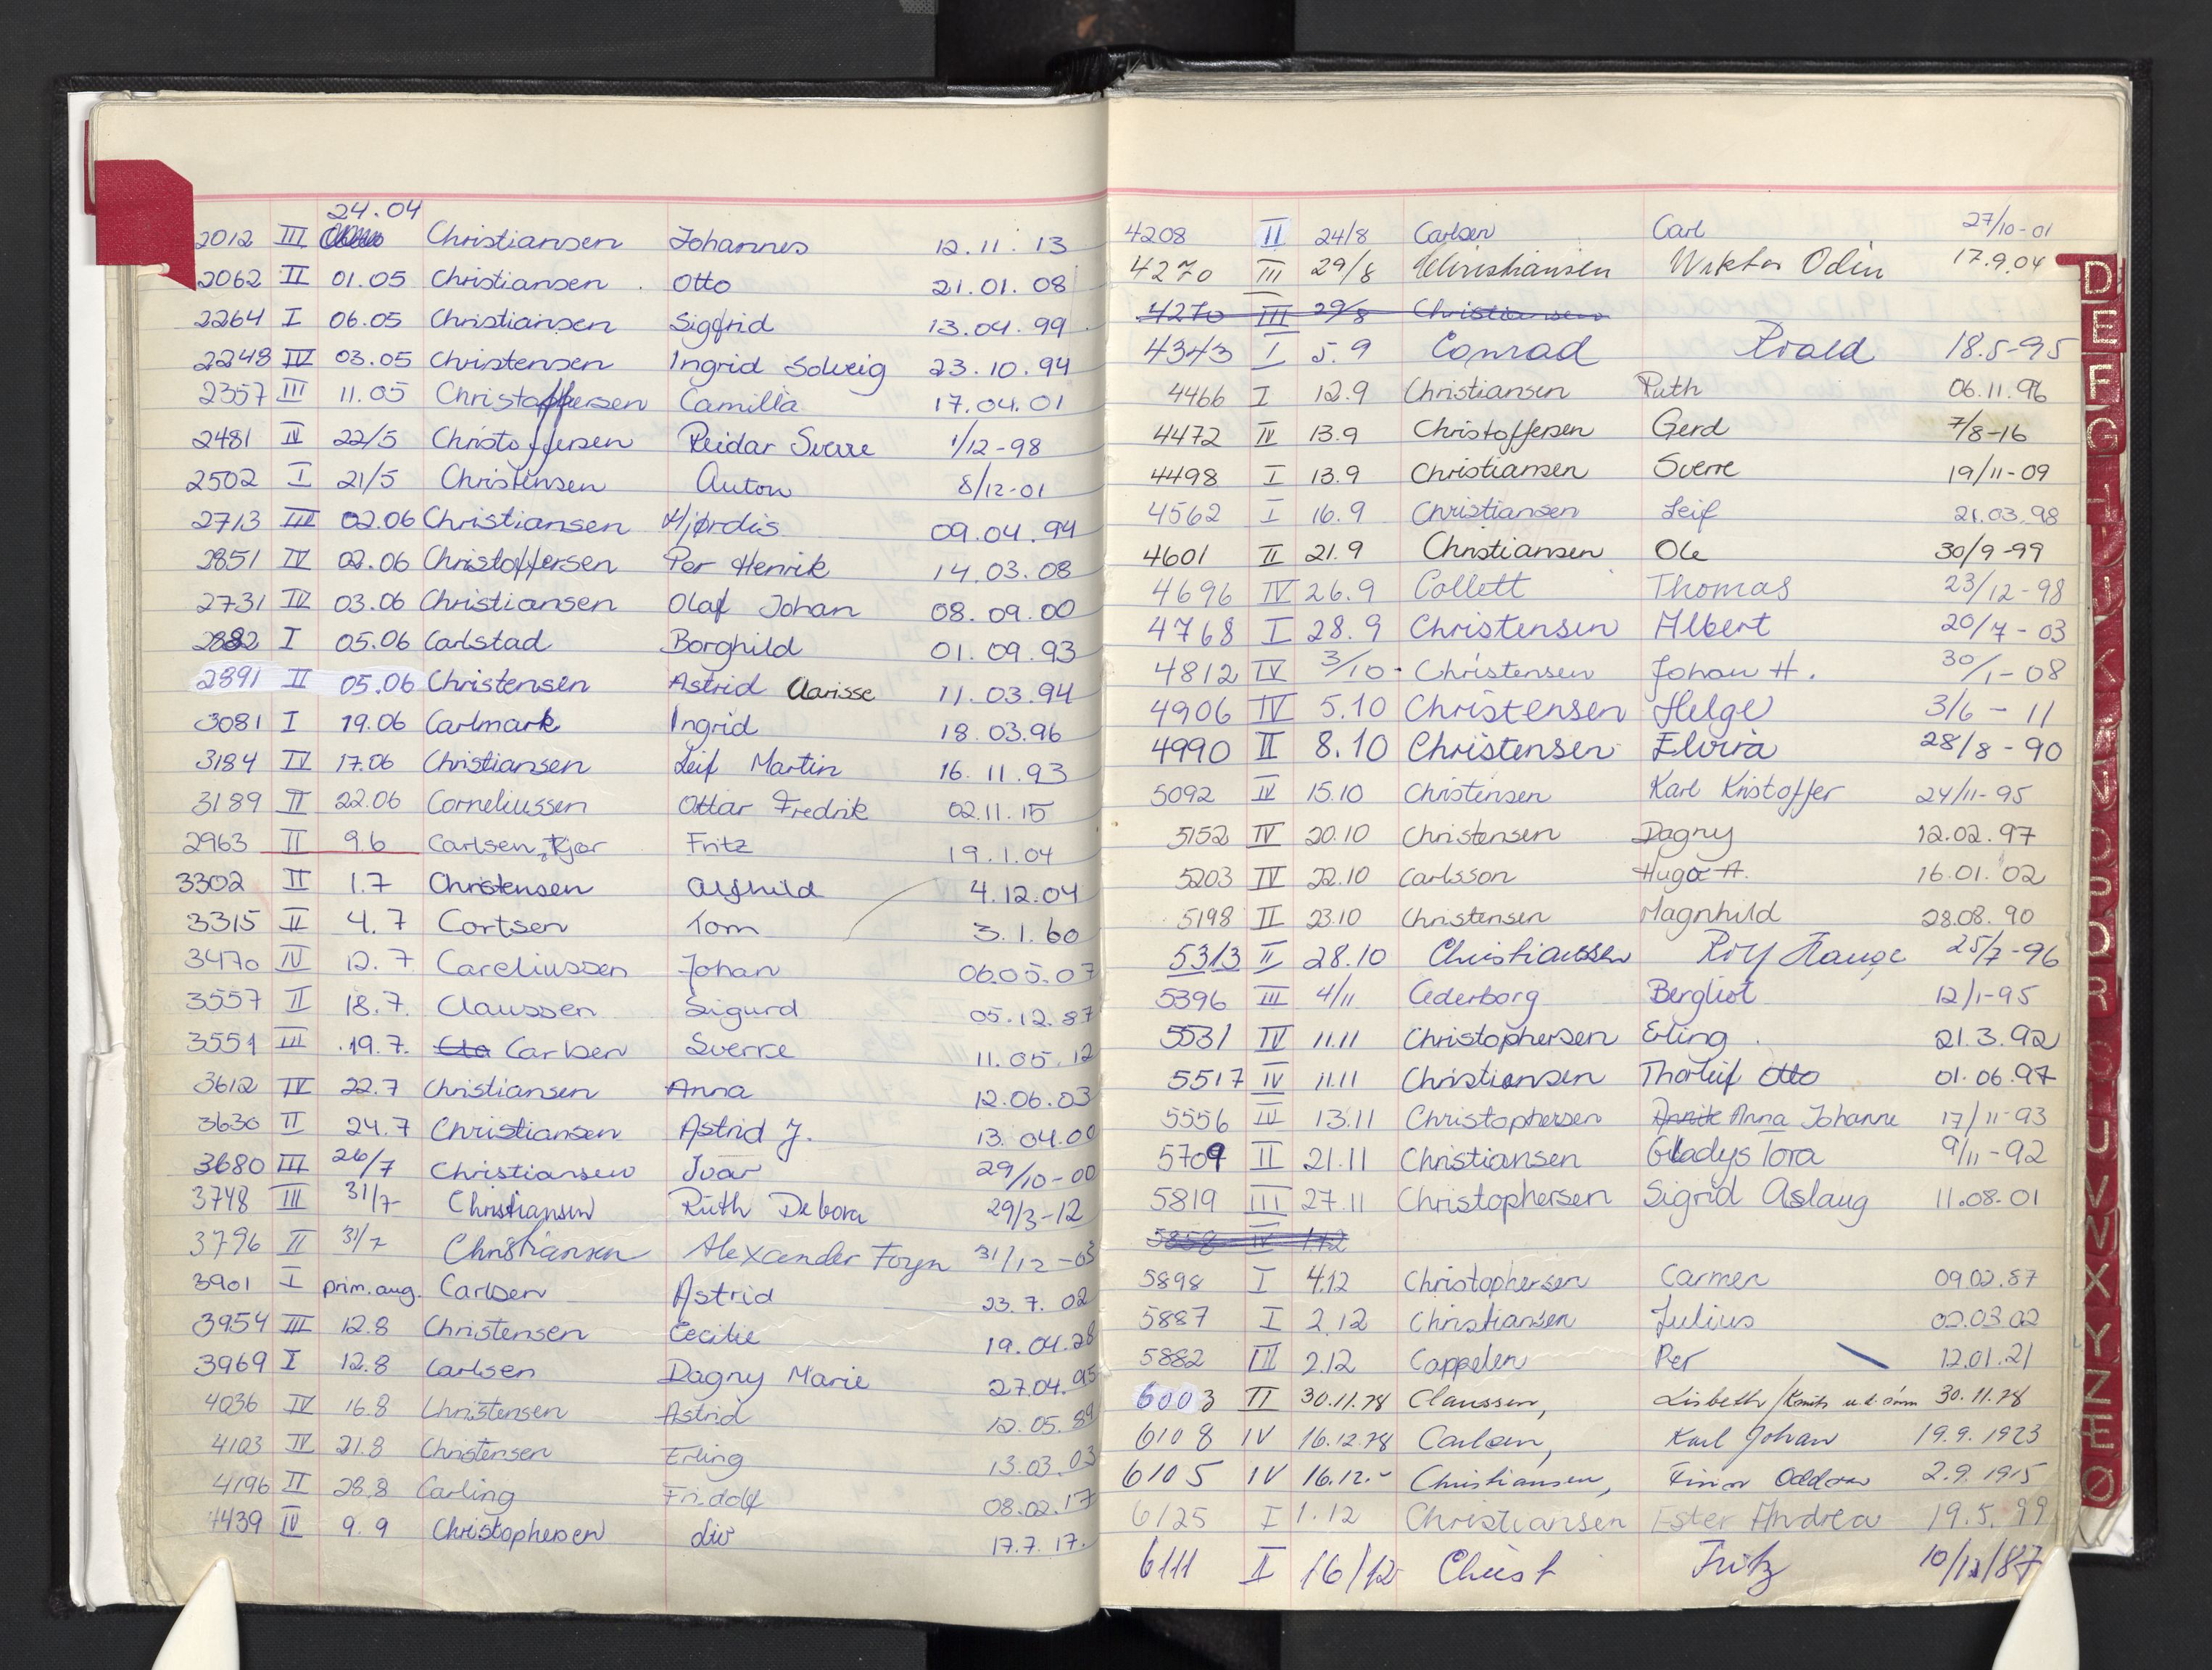 24.04
2012 III Christiansen Johannes 12.11.13
2062 II 01.05 Christiansen Otto 21.01.08
2264 I 06.05 Christiansen Sigfrid 13.04.99
2248 IV 03.05 Christensen Ingrid Solveig 23.10.94
2357 III 11.05 Christoffersen Camilla 17.04.01
2481 IV 22/5 Christoffersen Reidar Sverre 1/12-98
2502 I 21/5 Christensen Anton 8/12-01
2713 III 02.06 Christiansen Hjørdis 09.04.94
2851 IV 02.06 Christoffersen Per Henrik 14.03.08
2731 IV 03.06 Christiansen Olaf Johan 08.09.00
2882 I 05.06 Carlstad Borghild 01.09.93
2891 II 05.06 Christensen Astrid Clarisse 11.03.94
3081 I 19.06 Carlmark Ingrid 18.03.96
3184 IV 17.06 Christiansen Leif Martin 16.11.93
3189 II 22.06 Corneliussen Ottar Fredrik 02.11.15
2963 II 9.6 Carlsen, Kjær Fritz 19.1.04
3302 II 1.7 Christensen Alfhild 4.12.04
3315 II 4.7 Cortsen Tom 3.1.60
3470 IV 12.7 Careliussen Johan 06.05.07
3557 II 18.7. Claussen Sigurd 05.12.87
3551 III 19.7. Cla Carlsen Sverre 11.05.12
3612 IV 22.7 Christiansen Anna 12.06.03
3630 II 24.7 Christiansen Astrid J. 13.04.00
3680 III 26/7 Christiansen Ivar 29/10-00
3748 III 31/7 Christiansen Ruth Debora 29/3-12
3796 II 31/7 Christiansen Alexander Foyn 31/12-03
3901 I prim.aug. Carlsen Astrid 23.7.02
3954 III 12.8 Christensen Cecilie 19.04.28
3969 I 12.8 Carlsen Dagny Marie 27.04.95
4036 IV 16.8 Christensen Astrid 12.05.89
4103 IV 21.8 Christensen Erling 13.03.03
4196 II 28.8 Carling Fridolf 08.02.17
4439 IV 9.9 Christophersen Liv 17.7.17.
4208 II 24/8 Carlsen Carl 27/10-01
4270 III 29/8 Christiansen Wiktor Odin 17.9.04
4270 III 29/8 Christiansen
4343 I 5.9 Conrad Roald 18.5-95
4466 I 12.9 Christiansen Ruth 06.11.96
4472 IV 13.9 Christoffersen Gerd 7/8-16
4498 I 13.9 Christiansen Sverre 19/11-09
4562 I 16.9 Christiansen Leif 21.03.98
4601 II 21.9 Christiansen Ole 30/9-99
4696 IV 26.9 Collett Thomas 23/12-98
4768 I 28.9 Christensen Albert 20/7-03
4812 IV 3/10 Christensen Johan H. 30/1-08
4906 IV 5.10 Christensen Helge 3/6-11
4990 II 8.10 Christensen Elvira 28/8-90
5092 IV 15.10 Christensen Karl Kristoffer 24/11-95
5152 IV 20.10 Christensen Dagny 12.02.97
5203 IV 22.10 Carlsson Hugo A. 16.01.02
5198 II 23.10 Christensen Magnhild 28.08.90
5313 II 28.10 Christiansen Roy Hauge 25/7-96
5396 III 4/11 Cederborg Bergliot 12/1-95
5531 IV 11.11 Christophersen Erling 21.3.92
5517 IV 11.11 Christiansen Thorleif Otto 01.06.97
5556 III 13.11 Christophersen Anna Johanne 17/11-93
5709 II 21.11 Christiansen Gladys Tora 9/11-92
5819 III 27.11 Christophersen Sigrid Aslaug 11.08.01
5858 IV 1.12
5898 I 4.12 Christophersen Carmen 09.02.87
5887 I 2.12 Christiansen Julius 02.03.02
5882 III 2.12 Cappelen Per 12.01.21
6003 II 30.11.78 Claussen, Lisbeth 30.11.78
6108 IV 16.12.78 Carlsen, Karl Johan 19.9.1923
6105 IV 16.12.- Christiansen, Finn Oddvar 2.9.1915
6125 I 1.12 Christiansen Ester Andrea 19.5.99
6111 II 16/12 Christ Fritz 10/12/87
D
E
F
G
I
J
K
N
O
P
R
U
V
W
X
Y
Z
Æ
Ø